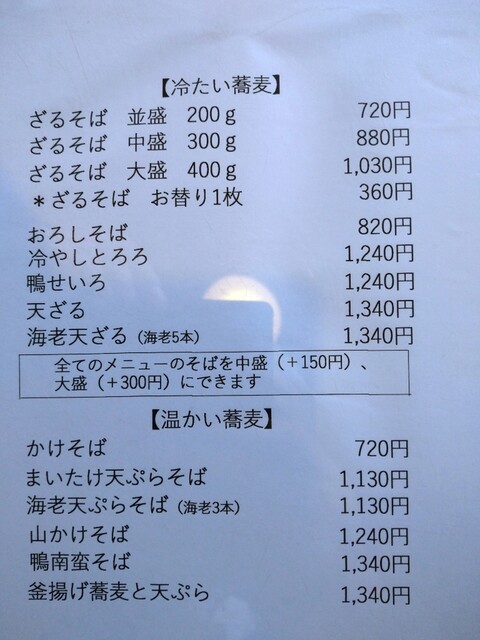 【冷たい蕎麦】
ざるそば 並盛 200g 720円
ざるそば 中盛 300g 880円
ざるそば 大盛 400g 1,030円
＊ざるそば お替り1枚 360円
おろしそば 820円
冷やしとろろ 1,240円
鴨せいろ 1,240円
天ざる 1,340円
海老天ざる（海老5本） 1,340円
全てのメニューのそばを中盛（＋150円）、
大盛（＋300円）にできます
【温かい蕎麦】
かけそば 720円
まいたけ天ぷらそば 1,130円
海老天ぷらそば（海老3本） 1,130円
山かけそば 1,240円
鴨南蛮そば 1,340円
釜揚げ蕎麦と天ぷら 1,340円